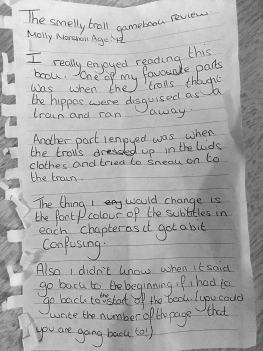 The smelly troll gamebook review
Molly Age 12
I really enjoyed reading this
book. One of my favourite parts
was when the trolls thought
the hippos were disguised as a
train and ran away.
Another part I enjoyed was when
the trolls dressed up in the kids
clothes and tried to sneak on to
the train
The thing I would change is
the font/colour of the subtitles in
each chapter as it got a bit
confusing.
Also I didn't know when it said
go back to the beginning if I had to
go back to the start of the book. (you could
write the number of the page that
you are going back to!)